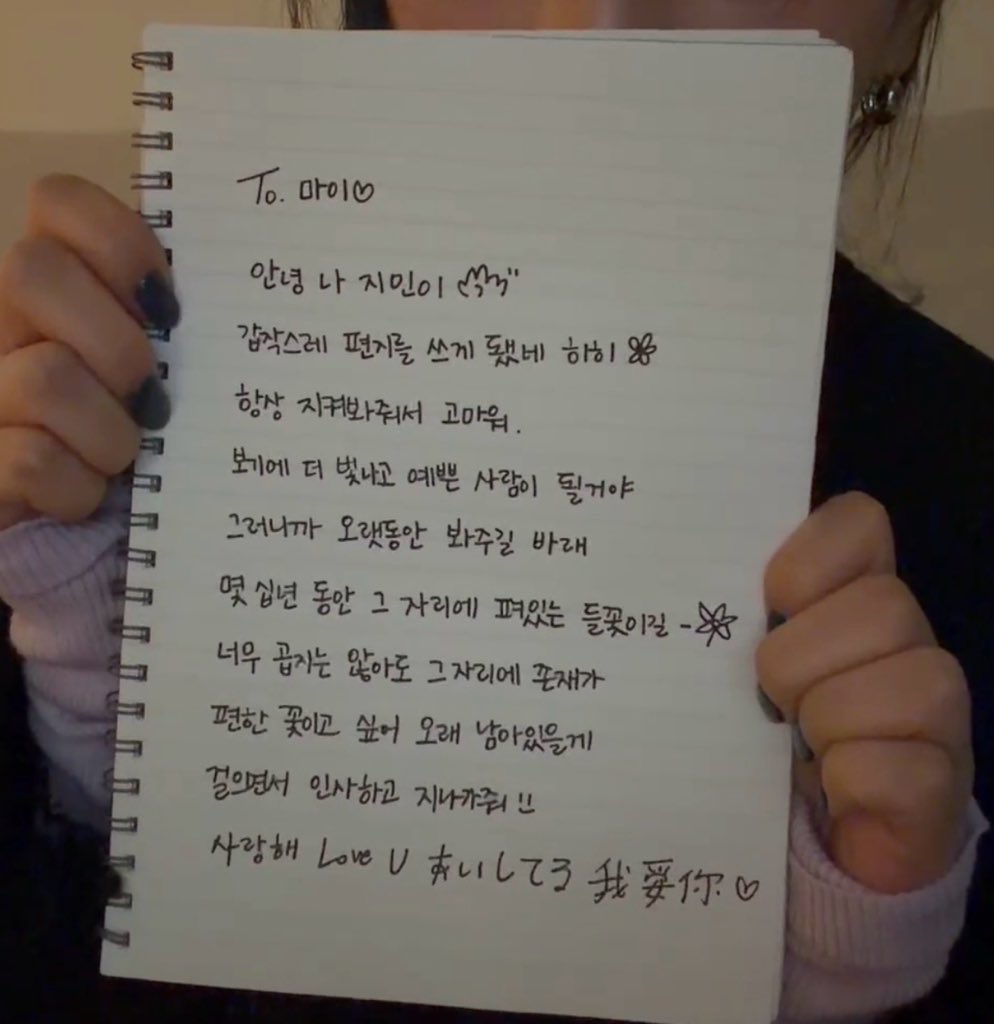 To. 마이♡
안녕 나 지민이
갑작스레 편지를 쓰게 됐네 히히
항상 지켜봐줘서 고마워.
보기에 더 빛나고 예쁜 사람이 될거야
그러니까 오랫동안 봐주길 바래
몇 십년 동안 그 자리에 펴있는 들꽃이길 -
너무 곱지는 않아도 그 자리에 존재가
편한 꽃이고 싶어 오래 남아있을게
걸으면서 인사하고 지나가줘 !!
사랑해 Love U あいしてる 我爱你 ♡